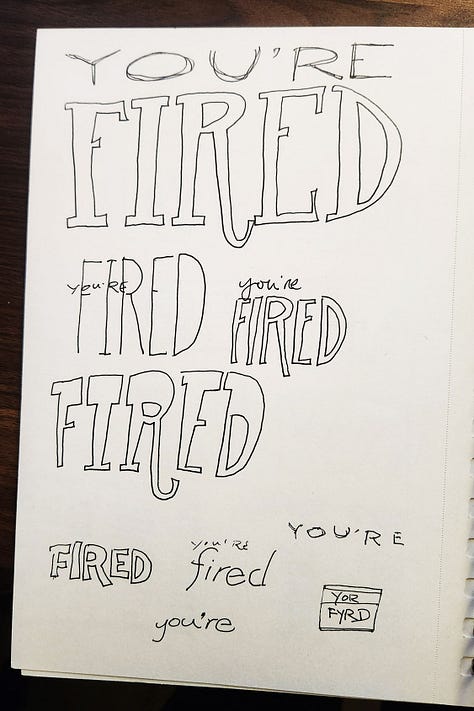 YOU'RE
FIRED
you'RE FIRED
you're
FIRED
FIRED
YOU'RE
FIRED
YOU'RE
fired
you're
YOR
FYRD